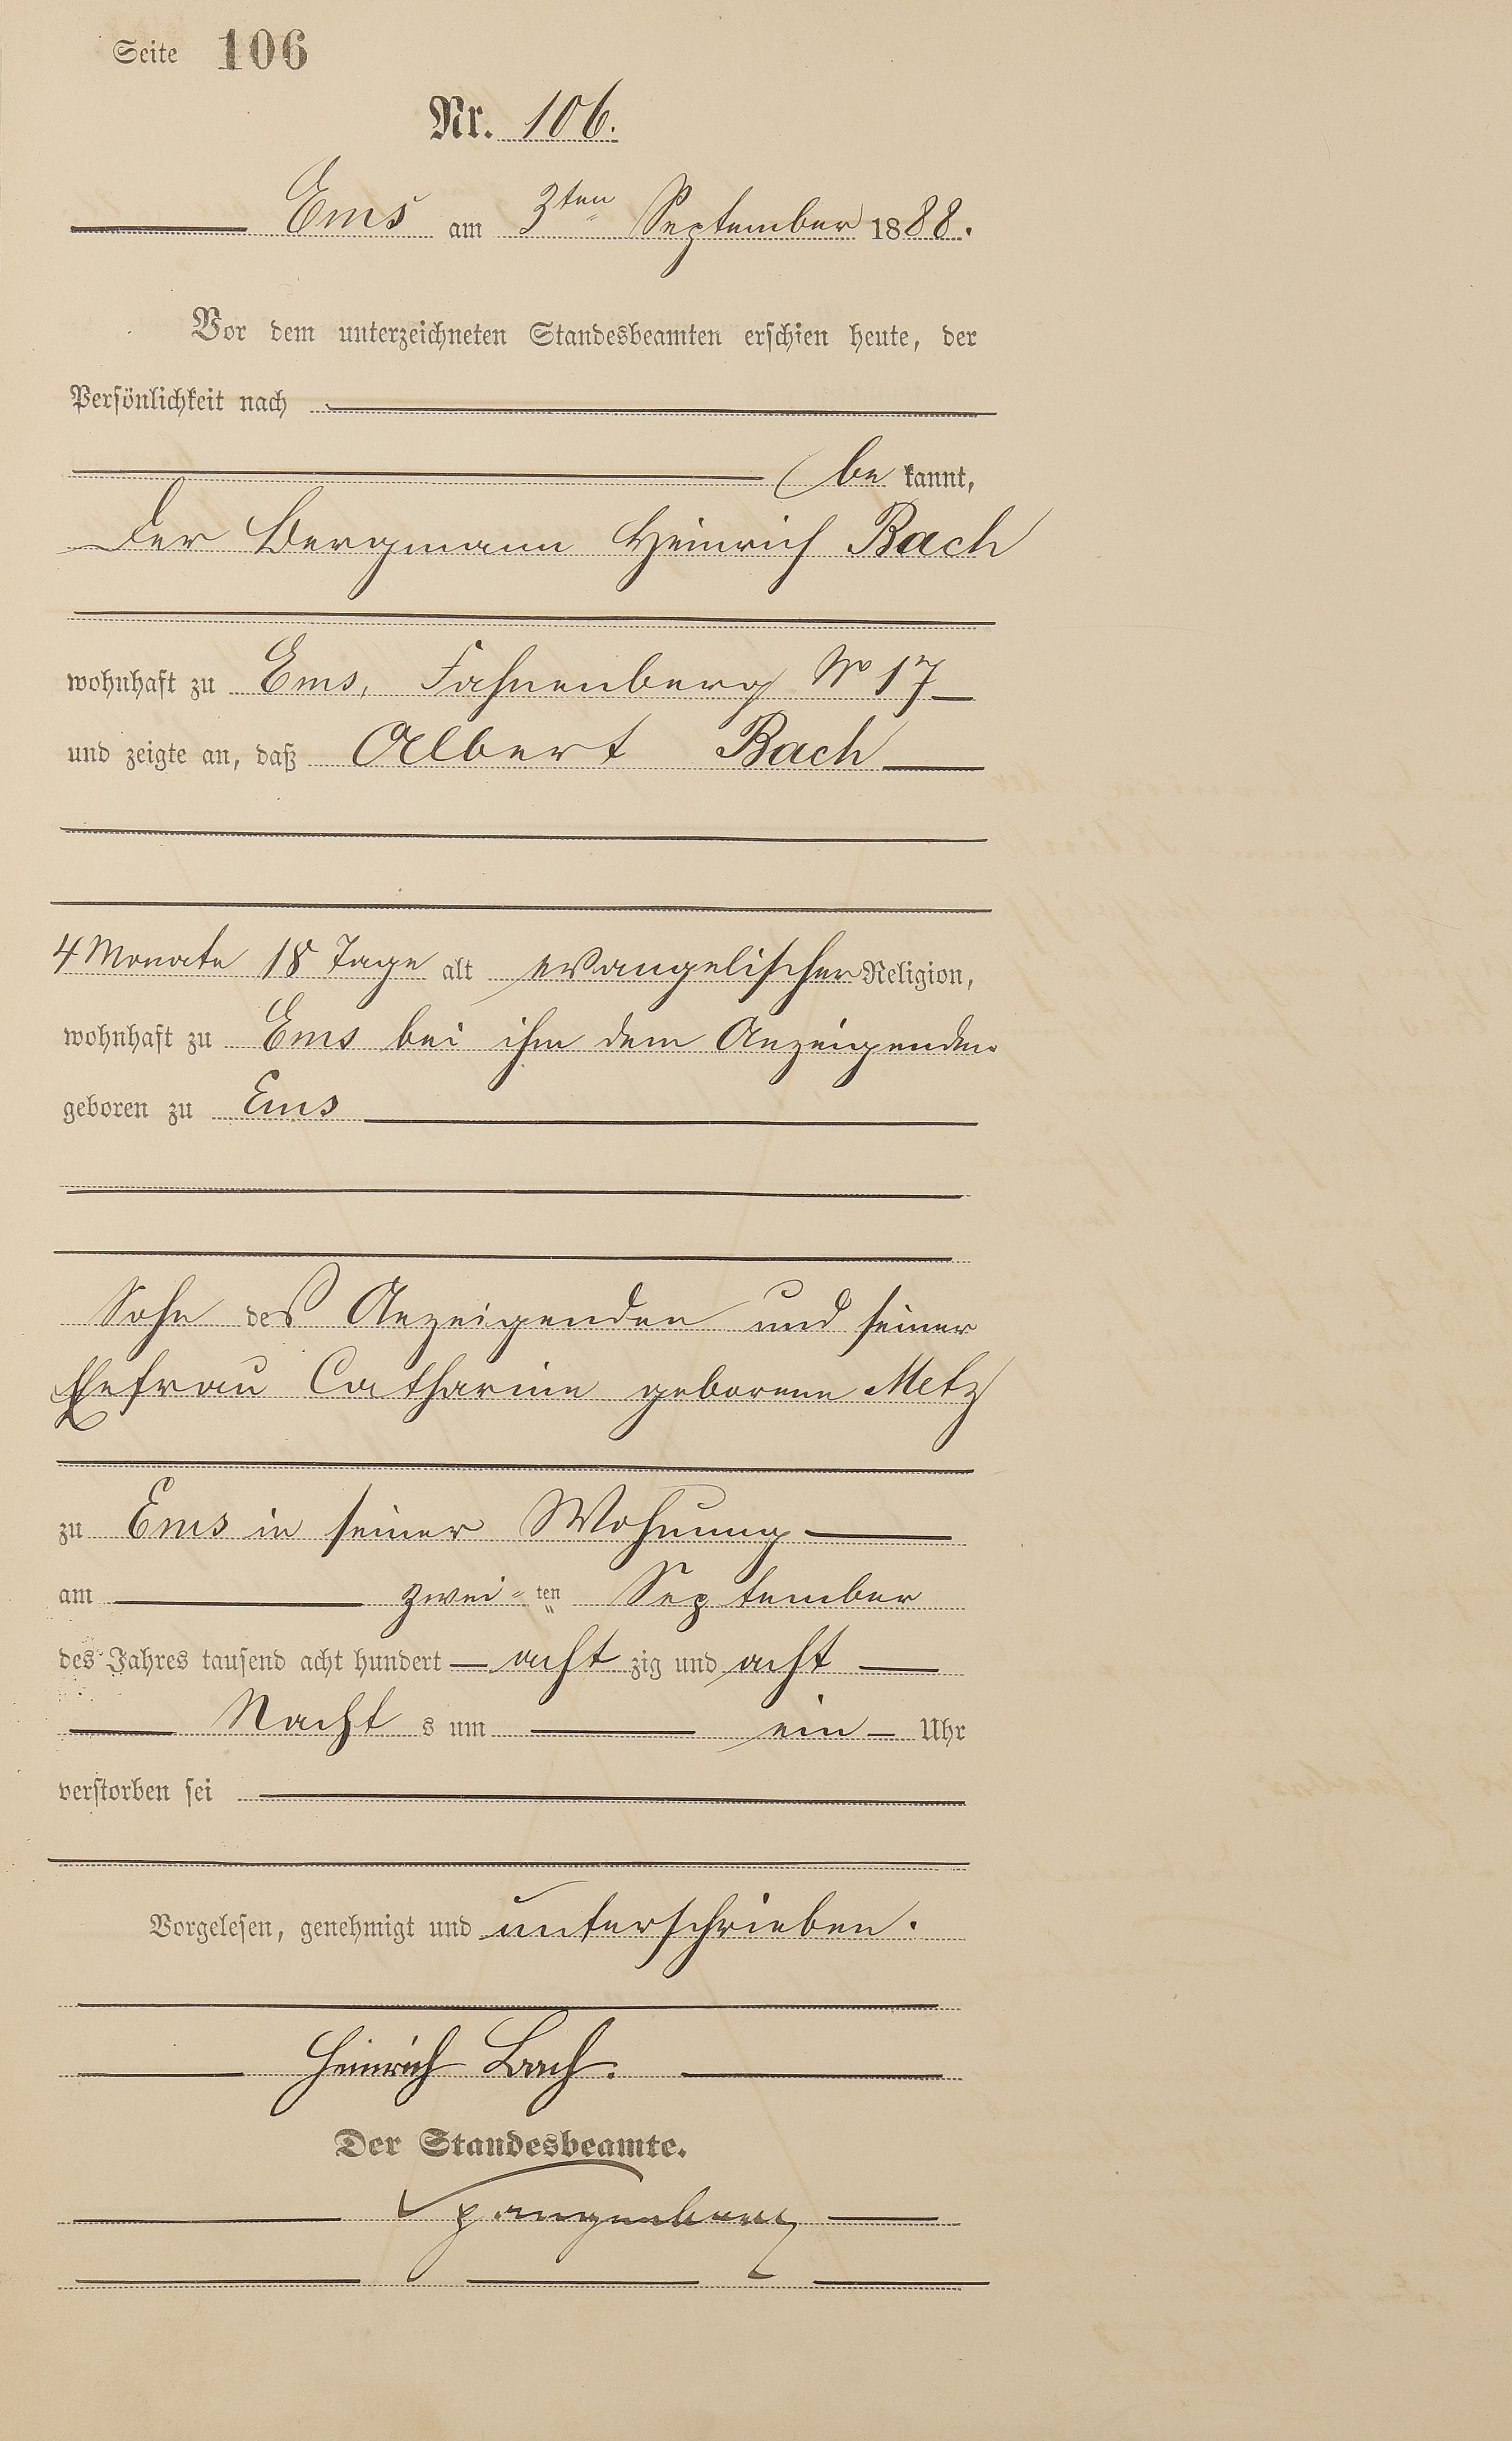 Seite 106
Nr. 106.
Ems am 3ten September 1888.
Vor dem unterzeichneten Standesbeamten erschien heute, der
Persönlichkeit nach
be kannt,
der Bergmann Heinrich Bach
wohnhaft zu Ems, Fahnenberg No 17
und zeigte an, daß Albert Bach
4 Monate 18 Tage alt evangelischer Religion,
wohnhaft zu Ems bei ihm dem Anzeigenden
geboren zu Ems
Sohn des Anzeigenden und seiner
Ehefrau Catharine geborene Metz
zu Ems in seiner Wohnung
am zwei ten September
des Jahres tausend acht hundert acht zig und acht
Nacht s um ein Uhr
verstorben sei
Vorgelesen, genehmigt und unterschrieben.
Heinrich Bach.
Der Standesbeamte.
Spangenberg